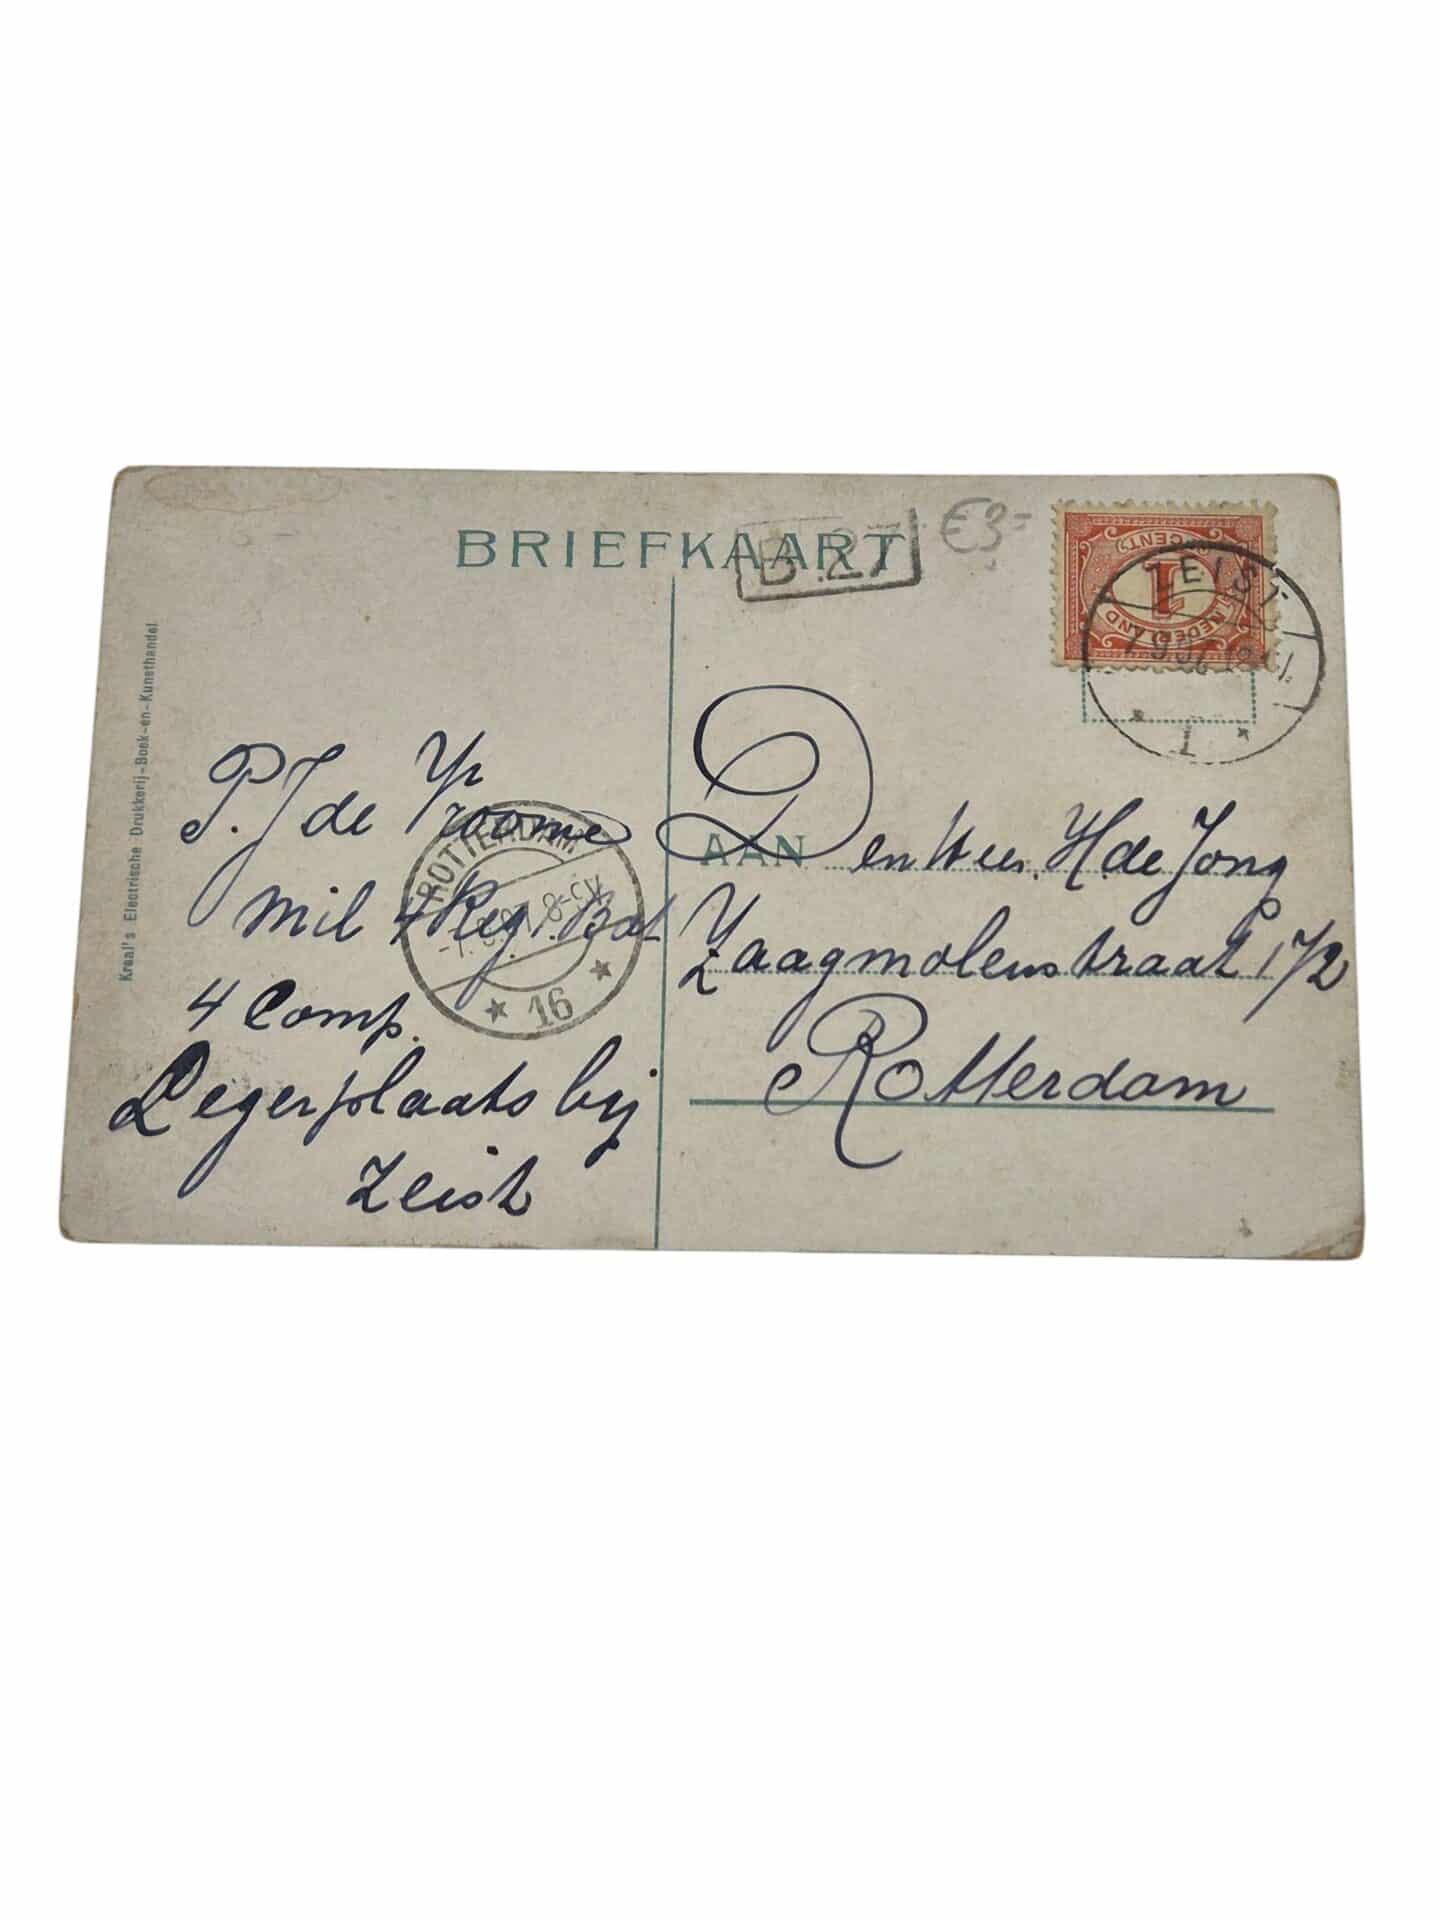 BRIEFKAART
B.27
€3,-
1 CENT
NEDERLAND
ZEIST
1
Kraal's Electrische Drukkerij-Boek-en-Kunsthandel
P. J de Vroome
ROTTERDAM
16
mil 4 Reg 1. Bat
4 Comp.
Legerplaats bij
Zeist
AAN Den Heer. H. de Jong
Zaagmolenstraat 172
Rotterdam